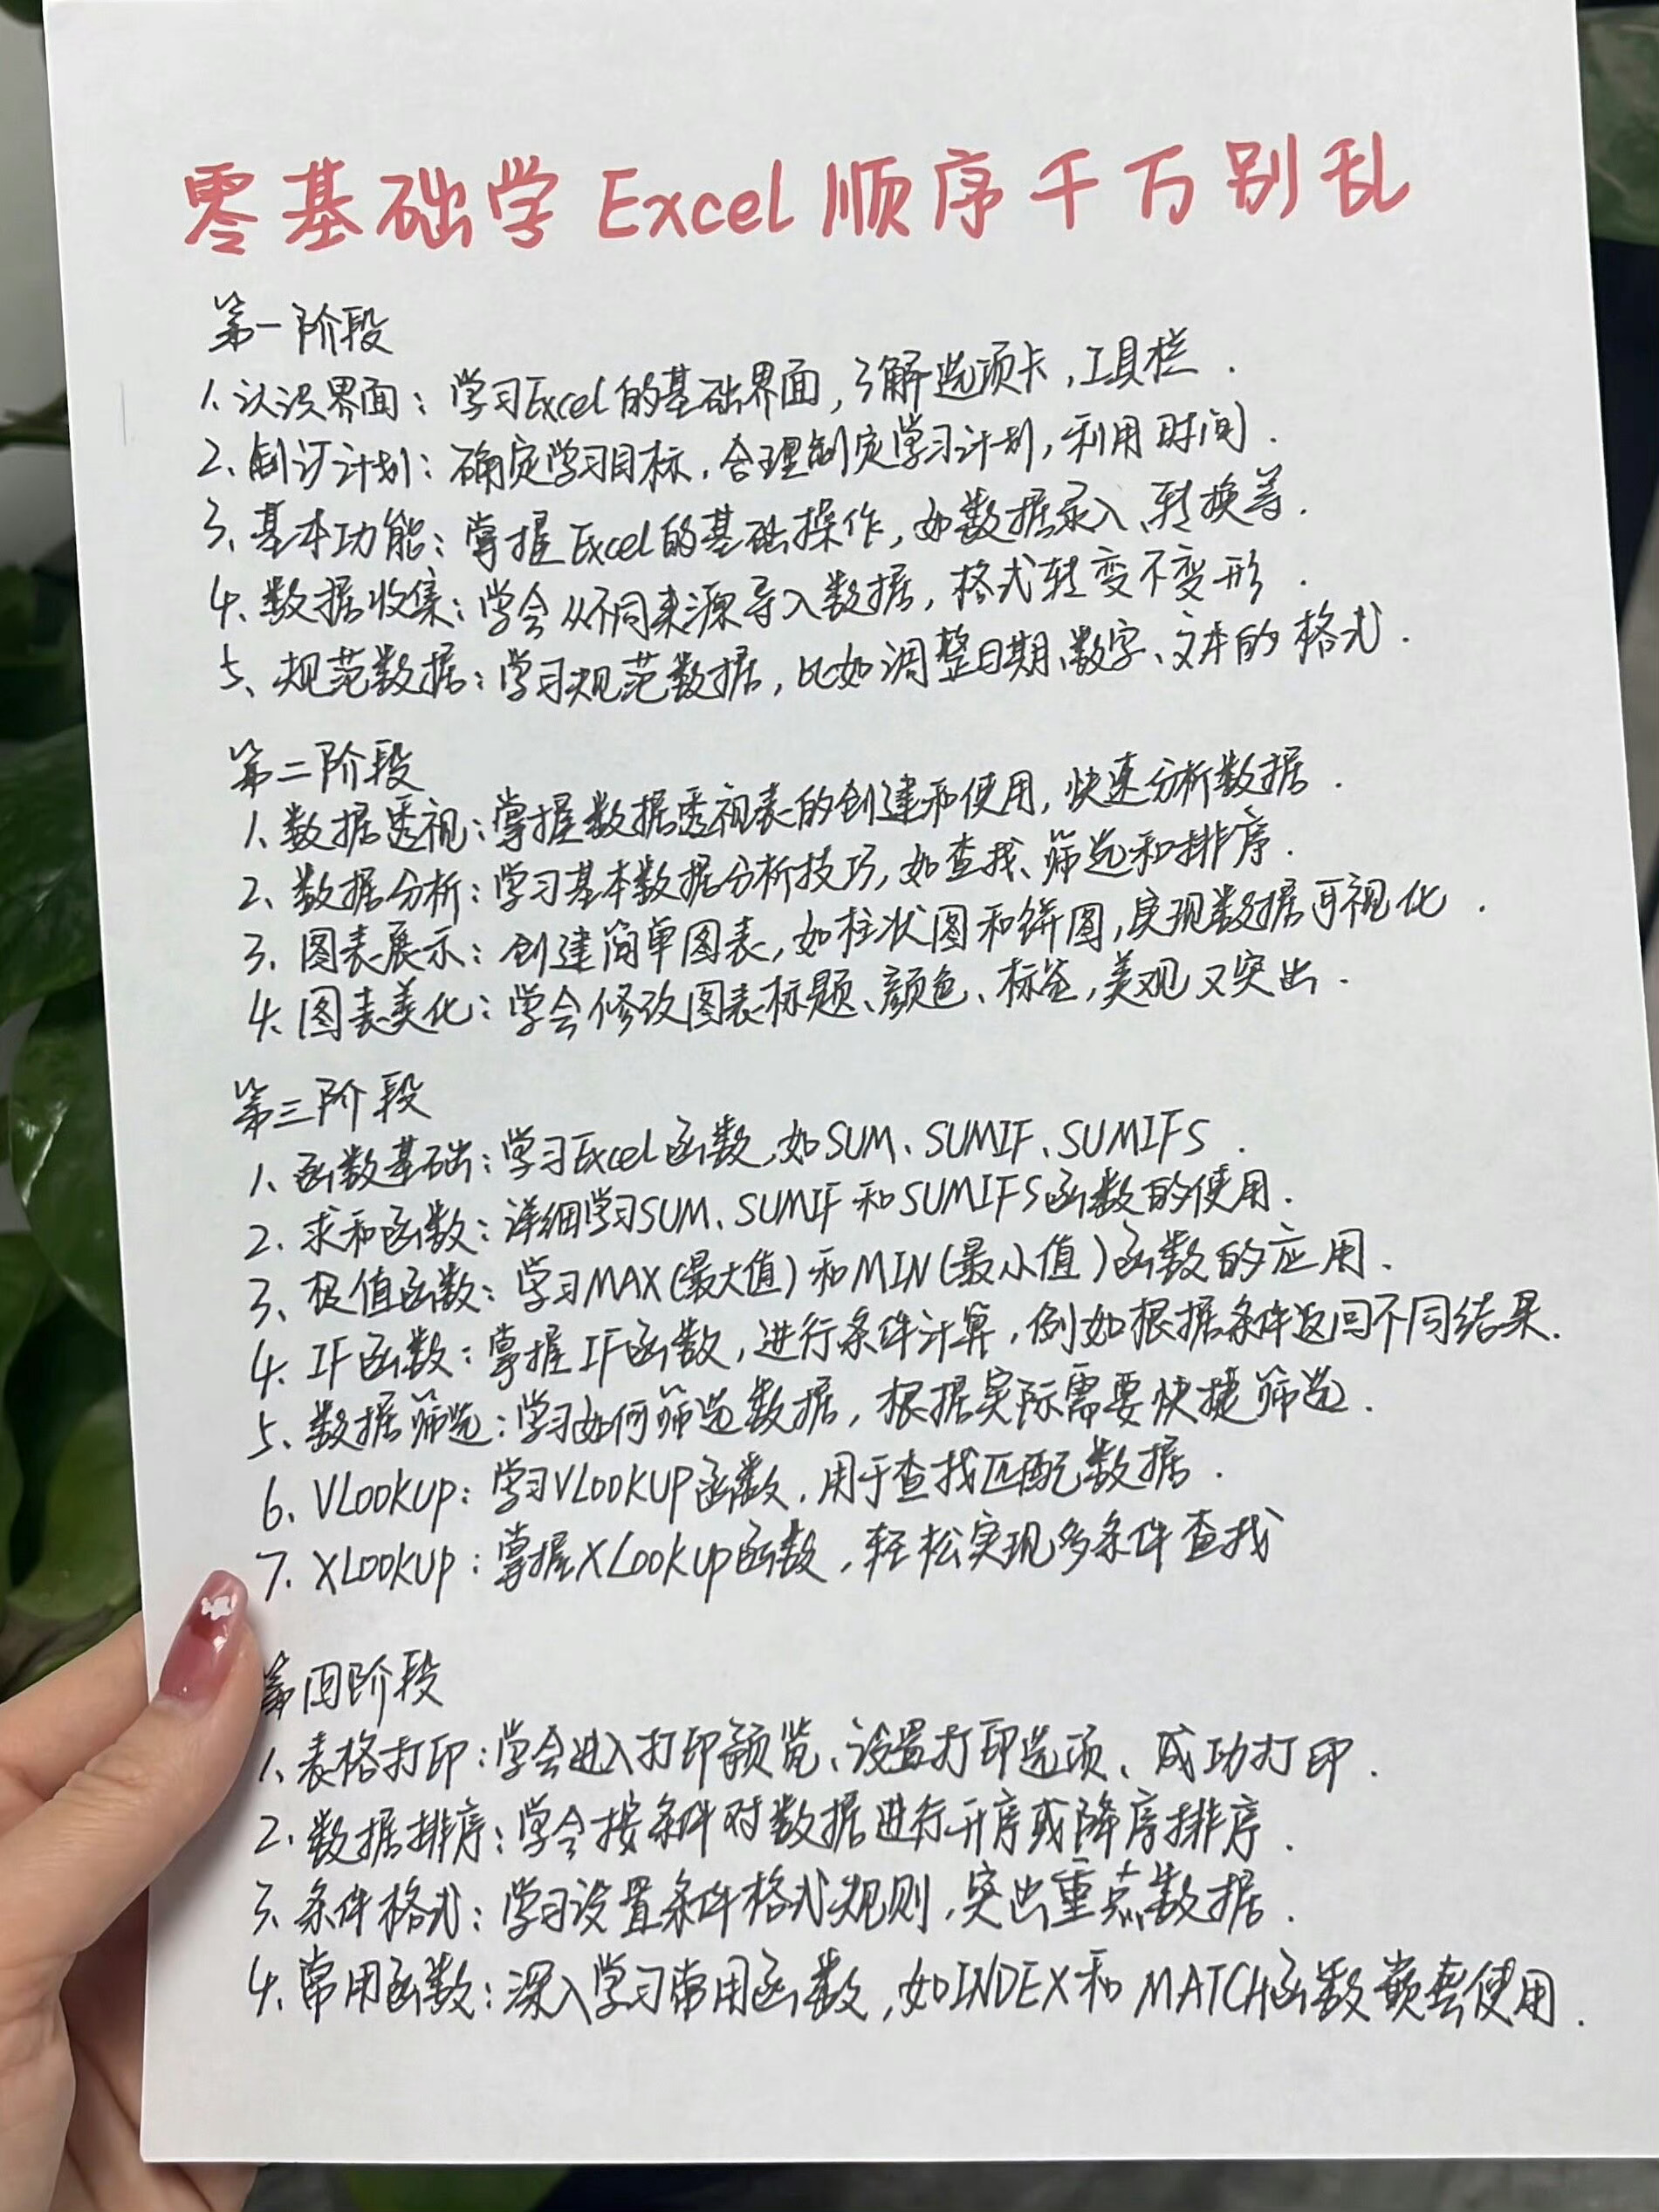 零基础学Excel顺序千万别乱
第一阶段
1.认识界面：学习Excel的基础界面，了解选项卡，工具栏.
2、制订计划：确定学习目标，合理制定学习计划，利用时间.
3、基本功能：掌握Excel的基础操作，如数据录入、转换等.
4、数据收集：学会从不同来源导入数据，格式转变不变形.
5、规范数据：学习规范数据，比如调整日期、数字、文本的格式.
第二阶段
1、数据透视：掌握数据透视表的创建和使用，快速分析数据.
2、数据分析：学习基本数据分析技巧，如查找、筛选和排序.
3、图表展示：创建简单图表，如柱状图和饼图，实现数据可视化.
4、图表美化：学会修改图表标题、颜色、标签，美观又突出.
第三阶段
1、函数基础：学习Excel函数，如SUM、SUMIF、SUMIFS.
2、求和函数：详细学习SUM、SUMIF和SUMIFS函数的使用.
3、极值函数：学习MAX(最大值)和MIN(最小值)函数的应用.
4、IF函数：掌握IF函数，进行条件计算，例如根据条件返回不同结果.
5、数据筛选：学习如何筛选数据，根据实际需要快捷筛选.
6、VLOOKUP：学习VLOOKUP函数，用于查找匹配数据.
7、XLOOKUP：掌握XLOOKUP函数，轻松实现多条件查找
第四阶段
1、表格打印：学会进入打印预览、设置打印选项、成功打印.
2、数据排序：学会按条件对数据进行升序或降序排序.
3、条件格式：学习设置条件格式规则，突出重点数据.
4、常用函数：深入学习常用函数，如INDEX和MATCH函数嵌套使用.